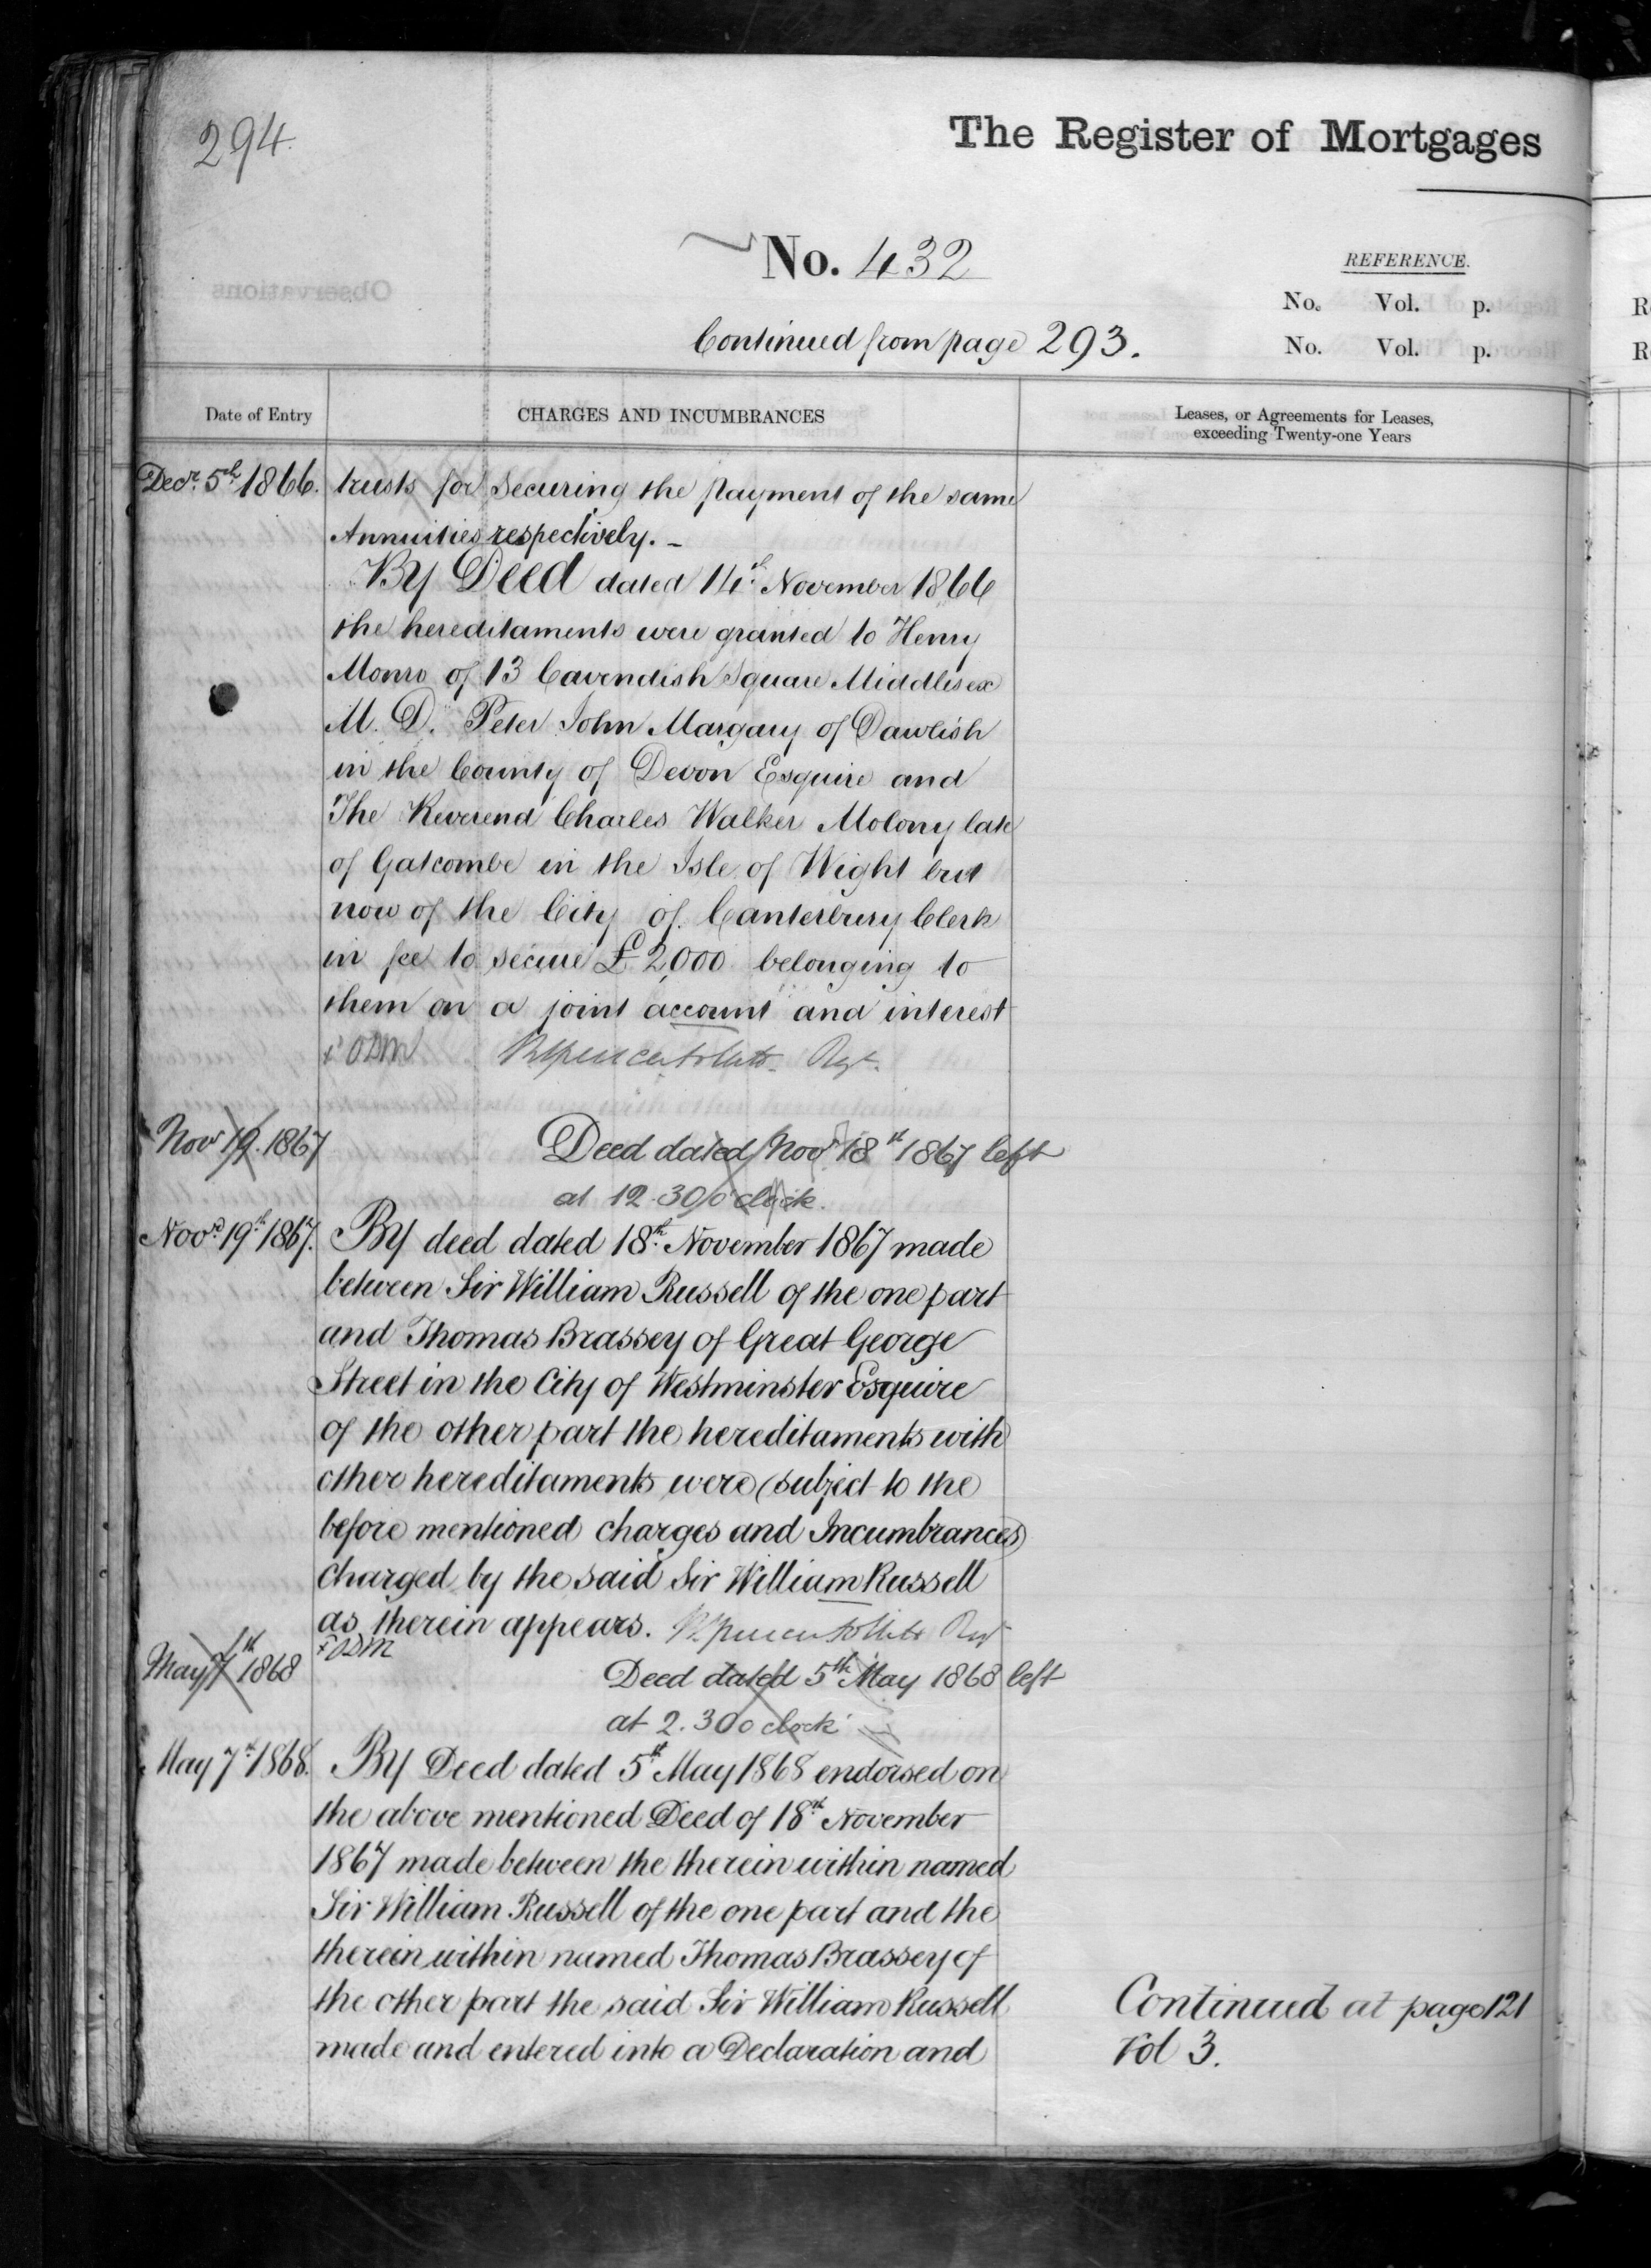 294.
The Register of Mortgages
No. 432
REFERENCE.
No. Vol. p.
No. Vol. p.
Continued from page 293.
Date of Entry
CHARGES AND INCUMBRANCES
Leases, or Agreements for Leases,
exceeding Twenty-one Years
Decr. 5th 1866. trusts for securing the payment of the same
Annuities respectively. -
By Deed dated 14th November 1866
the hereditaments were granted to Henry
Monro of 13 Cavendish Square Middlesex
M. D. Peter John Margary of Dawlish
in the County of Devon Esquire and
The Reverend Charles Walker Molony late
of Gatcombe in the Isle of Wight but
now of the City of Canterbury Clerk
in fee to secure £2,000 belonging to
them on a joint account and interest
Nov 19. 1867 Deed dated Nov 18th 1867 left
at 12.30 o'clock.
Novr. 19th 1867. By deed dated 18th November 1867 made
between Sir William Russell of the one part
and Thomas Brassey of Great George
Street in the City of Westminster Esquire
of the other part the hereditaments with
other hereditaments were (subject to the
before mentioned charges and Incumbrances)
charged by the said Sir William Russell
as therein appears.
May 7th 1868 Deed dated 5th May 1868 left
at 2.30 o clock
May 7th 1868. By Deed dated 5th May 1868 endorsed on
the above mentioned Deed of 18th November
1867 made between the therein within named
Sir William Russell of the one part and the
therein within named Thomas Brassey of
the other part the said Sir William Russell
made and entered into a Declaration and
Continued at page 121
Vol 3.